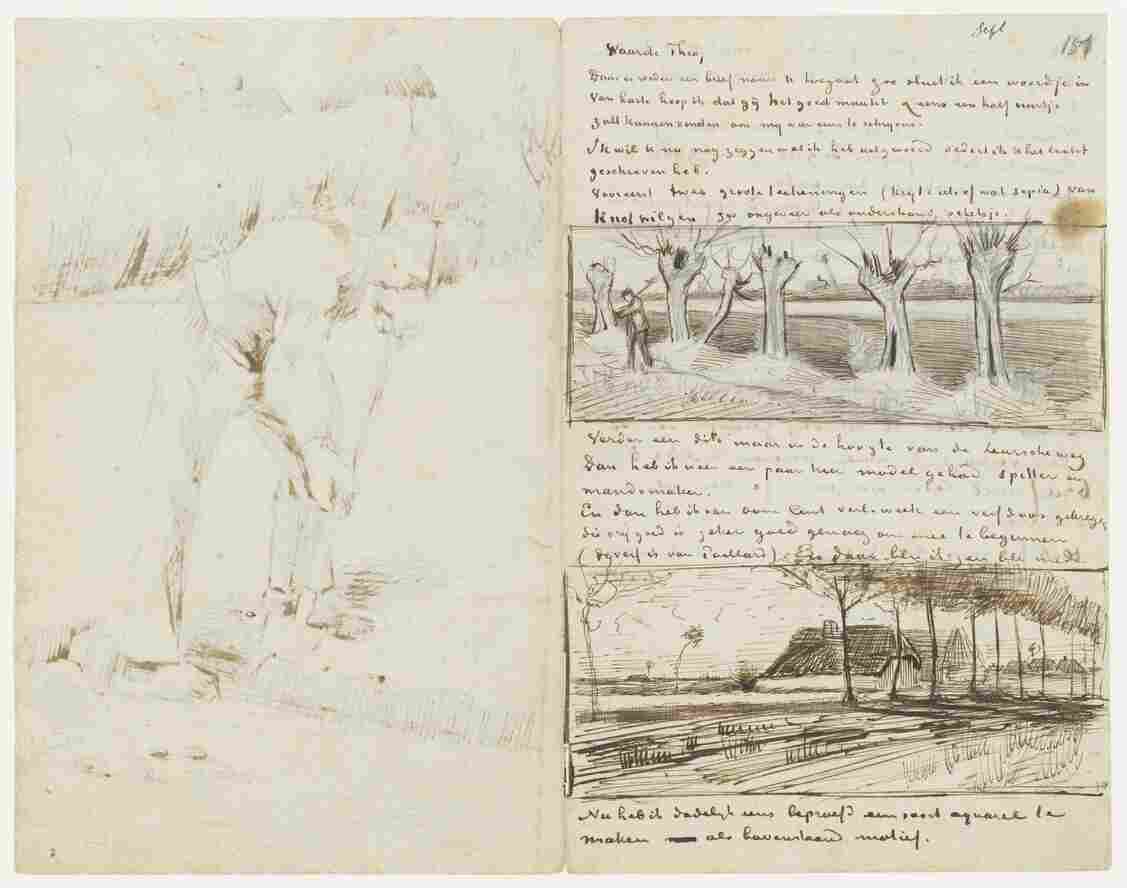 Sept
151
Waarde Theo,
Daar er weder een brief naar u toegaat zoo sluit ik een woordje in
Van harte hoop ik dat gij het goed maakt & eens een half uurtje
zult kunnen vinden om mij weer eens te schrijven.
Ik wil u nu nog zeggen wat ik heb uitgevoerd sedert ik u het laatst
geschreven heb.
Vooreerst twee groote teekeningen (krijt & iets of wat sepia) van
Knotwilgen zoo ongeveer als onderstaand schetsje.
Verder een dito maar in de hoogte van de Leurscheweg
Dan heb ik weer een paar keer model gehad spitter en
mandemaker.
En dan heb ik van oom Cent verl. week een verfdoos gekregen
die vrij goed is zeker goed genoeg om mee te beginnen
(de verf is van Paillard). En daar ben ik zeer blij mede
Nu heb ik dadelijk eens beproefd een soort aquarel te
maken als bovenstaand motief.